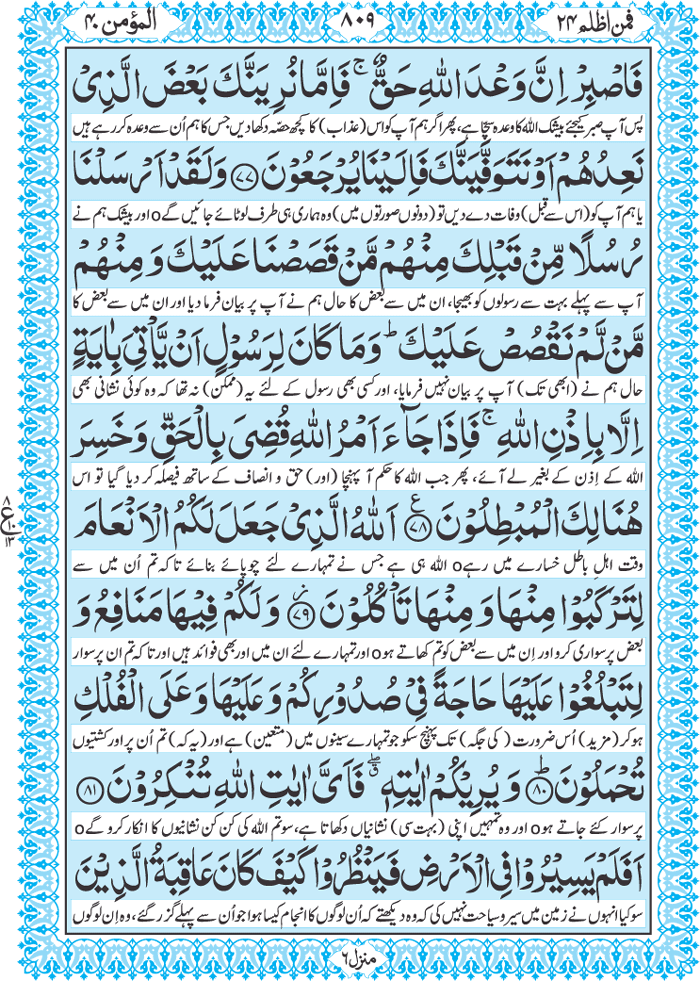 المؤمن ۴۰
۸۰۹
فمن اظلم ۲۴
فَاصْبِرْ اِنَّ وَعْدَ اللّٰهِ حَقٌّ ۚ فَاِمَّا نُرِیَنَّكَ بَعْضَ الَّذِیْ
پس آپ صبر کیجئے بیشک اللہ کا وعدہ سچا ہے، پھر اگر ہم آپ کو اس (عذاب) کا کچھ حصّہ دکھا دیں جس کا ہم اُن سے وعدہ کر رہے ہیں
نَعِدُهُمْ اَوْ نَتَوَفَّیَنَّكَ فَاِلَیْنَا یُرْجَعُوْنَ ﴿۷۷﴾ وَ لَقَدْ اَرْسَلْنَا
یا ہم آپ کو (اس سے قبل) وفات دے دیں تو (دونوں صورتوں میں) وہ ہماری ہی طرف لوٹائے جائیں گے o اور بیشک ہم نے
رُسُلًا مِّنْ قَبْلِكَ مِنْهُمْ مَّنْ قَصَصْنَا عَلَیْكَ وَ مِنْهُمْ
آپ سے پہلے بہت سے رسولوں کو بھیجا، ان میں سے بعض کا حال ہم نے آپ پر بیان فرما دیا اور ان میں سے بعض کا
مَّنْ لَّمْ نَقْصُصْ عَلَیْكَ ؕ وَ مَا كَانَ لِرَسُوْلٍ اَنْ یَّاْتِیَ بِاٰیَةٍ
حال ہم نے (ابھی تک) آپ پر بیان نہیں فرمایا، اور کسی بھی رسول کے لئے یہ (ممکن) نہ تھا کہ وہ کوئی نشانی بھی
اِلَّا بِاِذْنِ اللّٰهِ ۚ فَاِذَا جَآءَ اَمْرُ اللّٰهِ قُضِیَ بِالْحَقِّ وَ خَسِرَ
اللہ کے اِذن کے بغیر لے آئے، پھر جب اللہ کا حکم آ پہنچا (اور) حق و انصاف کے ساتھ فیصلہ کر دیا گیا تو اس
هُنَالِكَ الْمُبْطِلُوْنَ ﴿۷۸﴾ ع اَللّٰهُ الَّذِیْ جَعَلَ لَكُمُ الْاَنْعَامَ
۸ ع ۱۰ ۱۳
وقت اہلِ باطل خسارے میں رہے o اللہ ہی ہے جس نے تمہارے لئے چوپائے بنائے تاکہ تم اُن میں سے
لِتَرْكَبُوْا مِنْهَا وَ مِنْهَا تَاْكُلُوْنَ ﴿۷۹﴾ وَ لَكُمْ فِیْهَا مَنَافِعُ وَ
بعض پر سواری کرو اور اِن میں سے بعض کو تم کھاتے ہو o اور تمہارے لئے ان میں اور بھی فوائد ہیں اور تاکہ تم ان پر سوار
لِتَبْلُغُوْا عَلَیْهَا حَاجَةً فِیْ صُدُوْرِكُمْ وَ عَلَیْهَا وَ عَلَی الْفُلْكِ
ہو کر (مزید) اُس ضرورت (کی جگہ) تک پہنچ سکو جو تمہارے سینوں میں (متعین) ہے اور (یہ کہ) تم اُن پر اور کشتیوں
تُحْمَلُوْنَ ؕ﴿۸۰﴾ وَ یُرِیْكُمْ اٰیٰتِهٖ ۖۗ فَاَیَّ اٰیٰتِ اللّٰهِ تُنْكِرُوْنَ ﴿۸۱﴾
پر سوار کئے جاتے ہو o اور وہ تمہیں اپنی (بہت سی) نشانیاں دکھاتا ہے، سو تم اللہ کی کن کن نشانیوں کا انکار کرو گے o
اَفَلَمْ یَسِیْرُوْا فِی الْاَرْضِ فَیَنْظُرُوْا كَیْفَ كَانَ عَاقِبَةُ الَّذِیْنَ
سو کیا انہوں نے زمین میں سیر و سیاحت نہیں کی کہ وہ دیکھتے کہ اُن لوگوں کا انجام کیسا ہوا جو اُن سے پہلے گزر گئے، وہ اِن لوگوں
منزل ۶